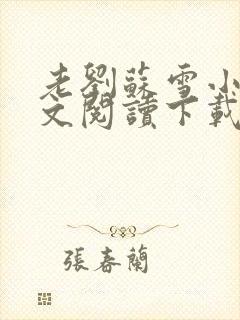 老劉蘇雪小
文閱讀下載
張春蘭